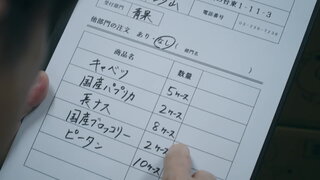 台東1-11-3
受付部門
青果
電話番号
他部門の注文 あり なし 部門名
商品名 数量
キャベツ 5ケース
国産パプリカ 2ケース
長ナス 8ケース
国産ブロッコリー 2ケース
ピータン 10ケース